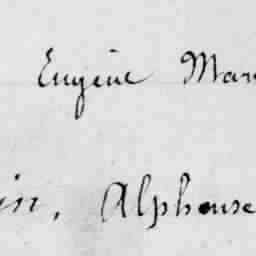 Eugène Mar
in, Alphonse